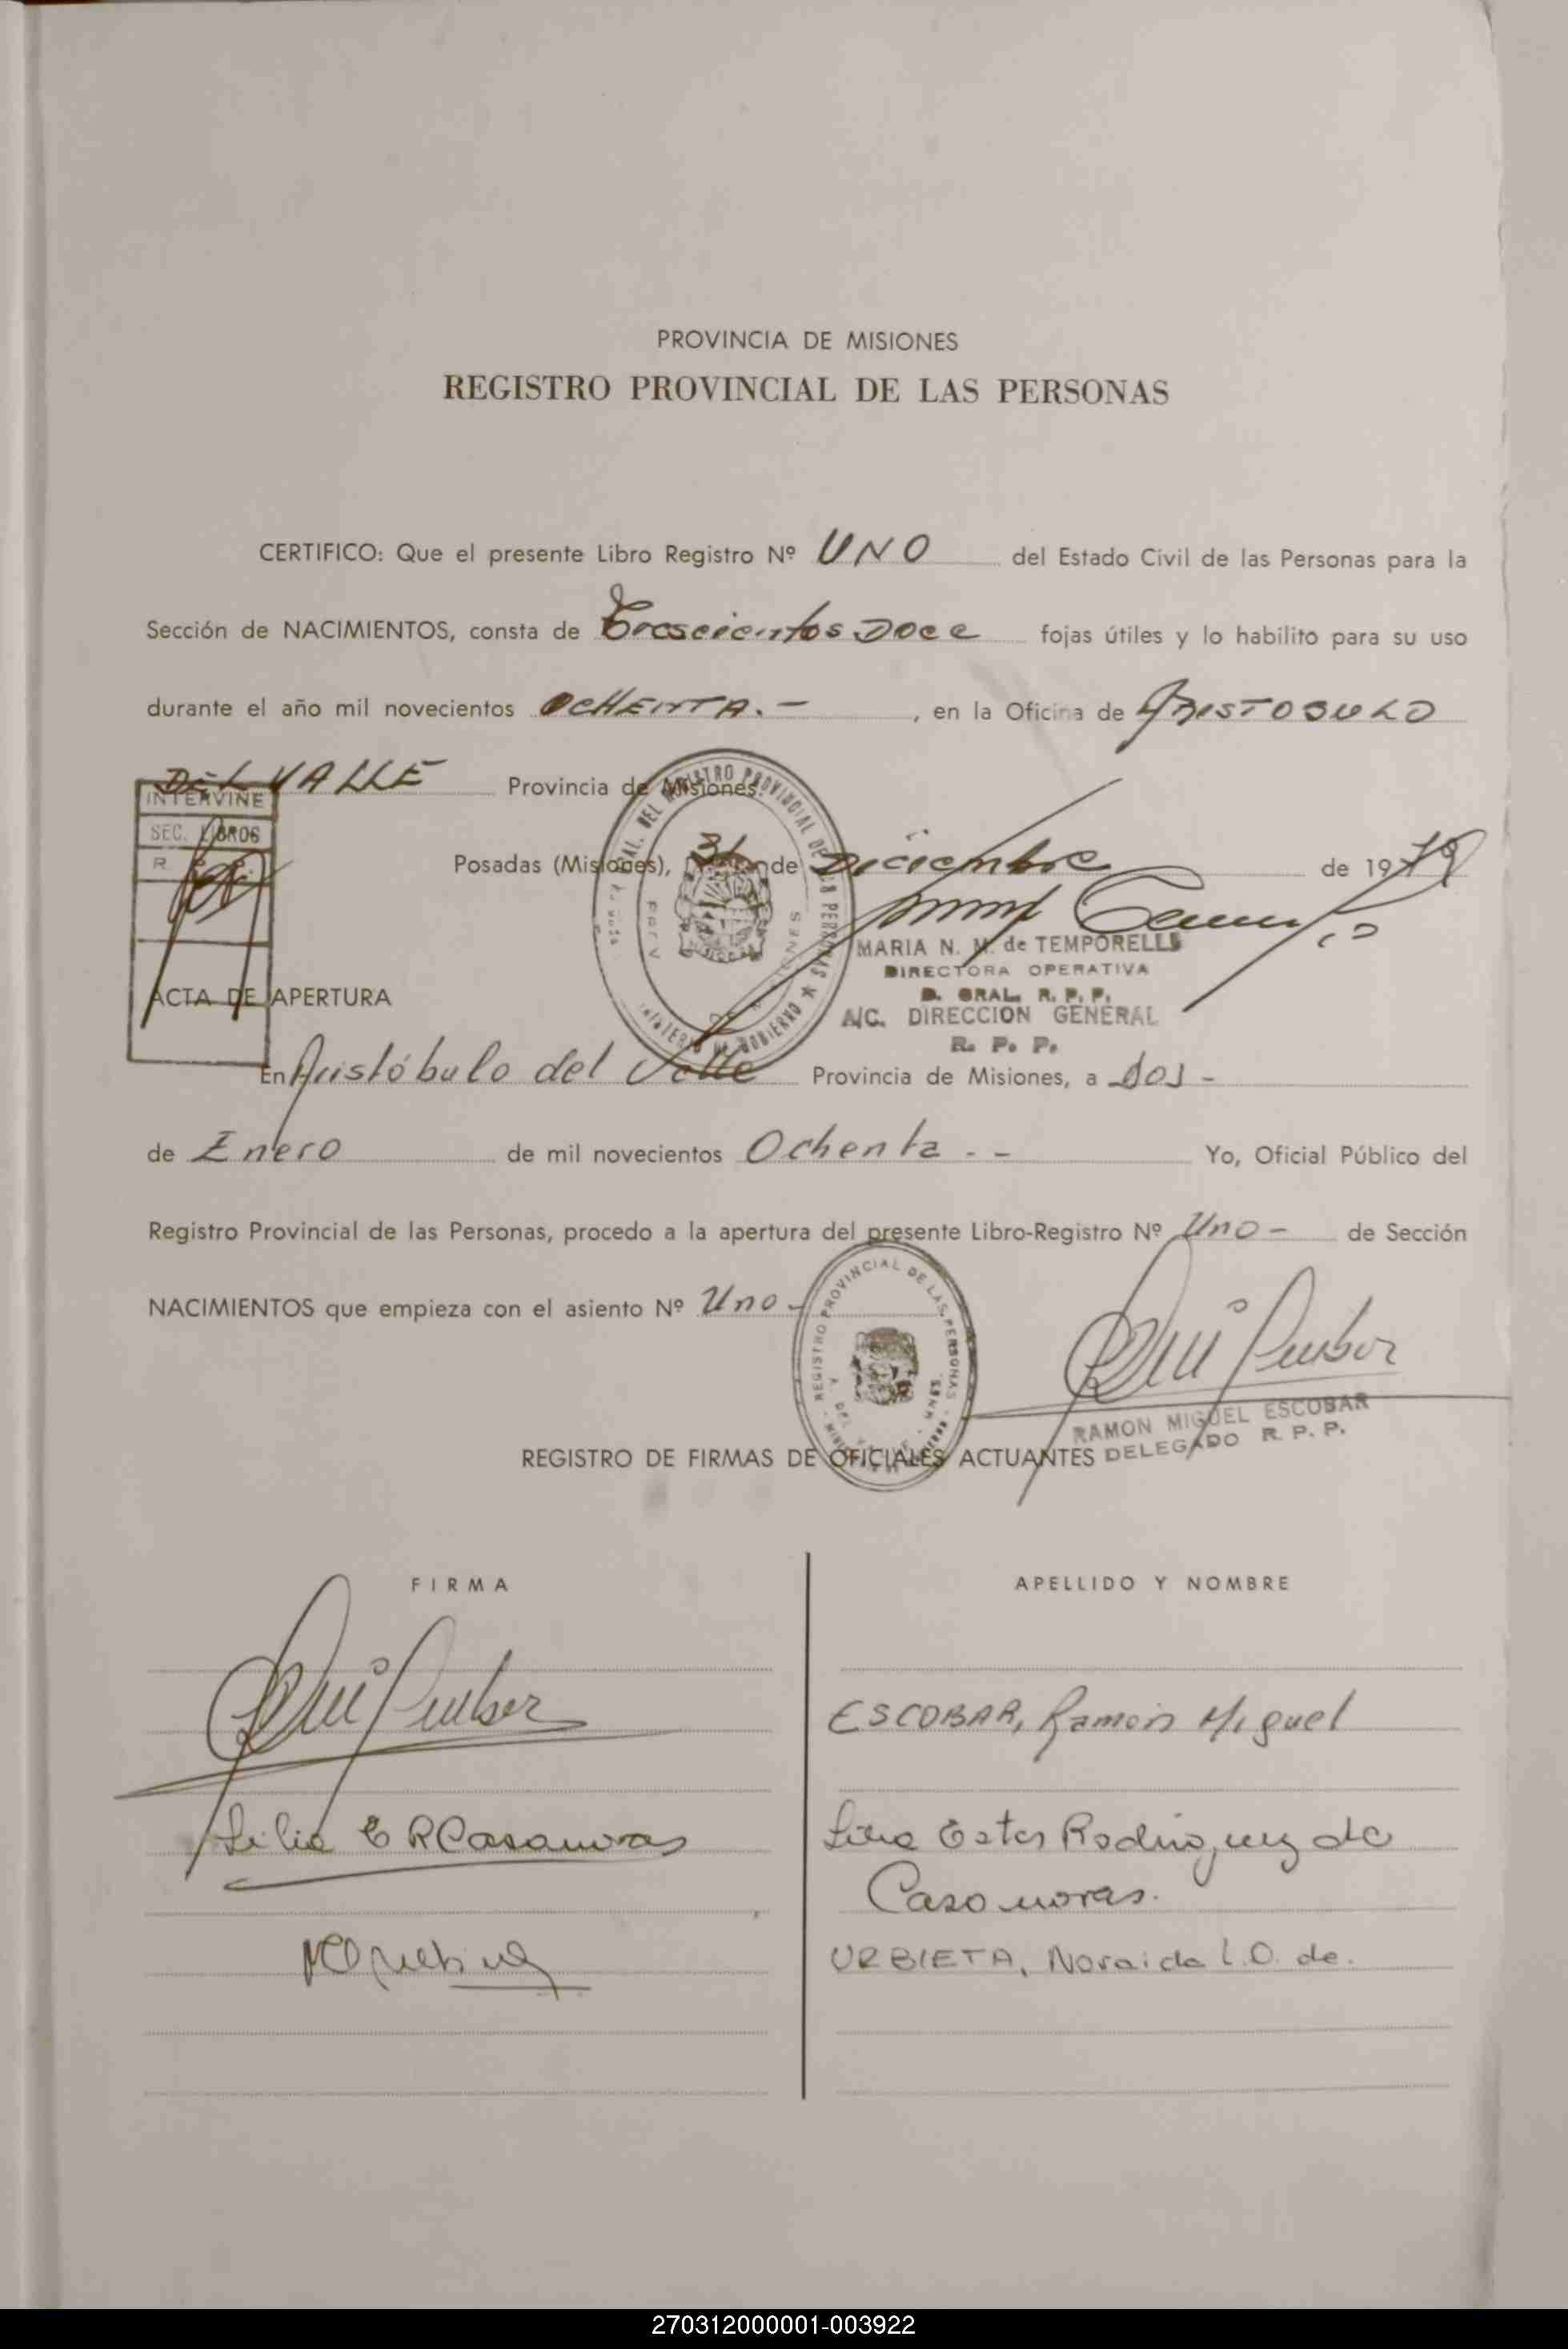 PROVINCIA DE MISIONES
REGISTRO PROVINCIAL DE LAS PERSONAS
CERTIFICO: Que el presente Libro Registro Nº UNO del Estado Civil de las Personas para la
Sección de NACIMIENTOS, consta de Trescientos Doce fojas útiles y lo habilito para su uso
durante el año mil novecientos OCHENTA.- , en la Oficina de ARISTOBULO
DEL VALLE Provincia de Misiones.
INTERVINE
SEC. LIBROS
R. P. P.
Posadas (Misiones), 31 de Diciembre de 1979
MARIA N. M. de TEMPORELLI
DIRECTORA OPERATIVA
D. GRAL. R. P. P.
A/C. DIRECCION GENERAL
R. P. P.
ACTA DE APERTURA
En Aristóbulo del Valle Provincia de Misiones, a dos -
de Enero de mil novecientos Ochenta - - Yo, Oficial Público del
Registro Provincial de las Personas, procedo a la apertura del presente Libro-Registro Nº Uno - de Sección
NACIMIENTOS que empieza con el asiento Nº Uno -
REGISTRO PROVINCIAL DE LAS PERSONAS
RAMON MIGUEL ESCOBAR
DELEGADO R. P. P.
REGISTRO DE FIRMAS DE OFICIALES ACTUANTES
FIRMA APELLIDO Y NOMBRE
ESCOBAR, Ramón Miguel
Lilia E R Casanovas Lilia Ester Rodriguez de
Casanovas.
URBIETA, Noraida L.O. de.
270312000001-003922